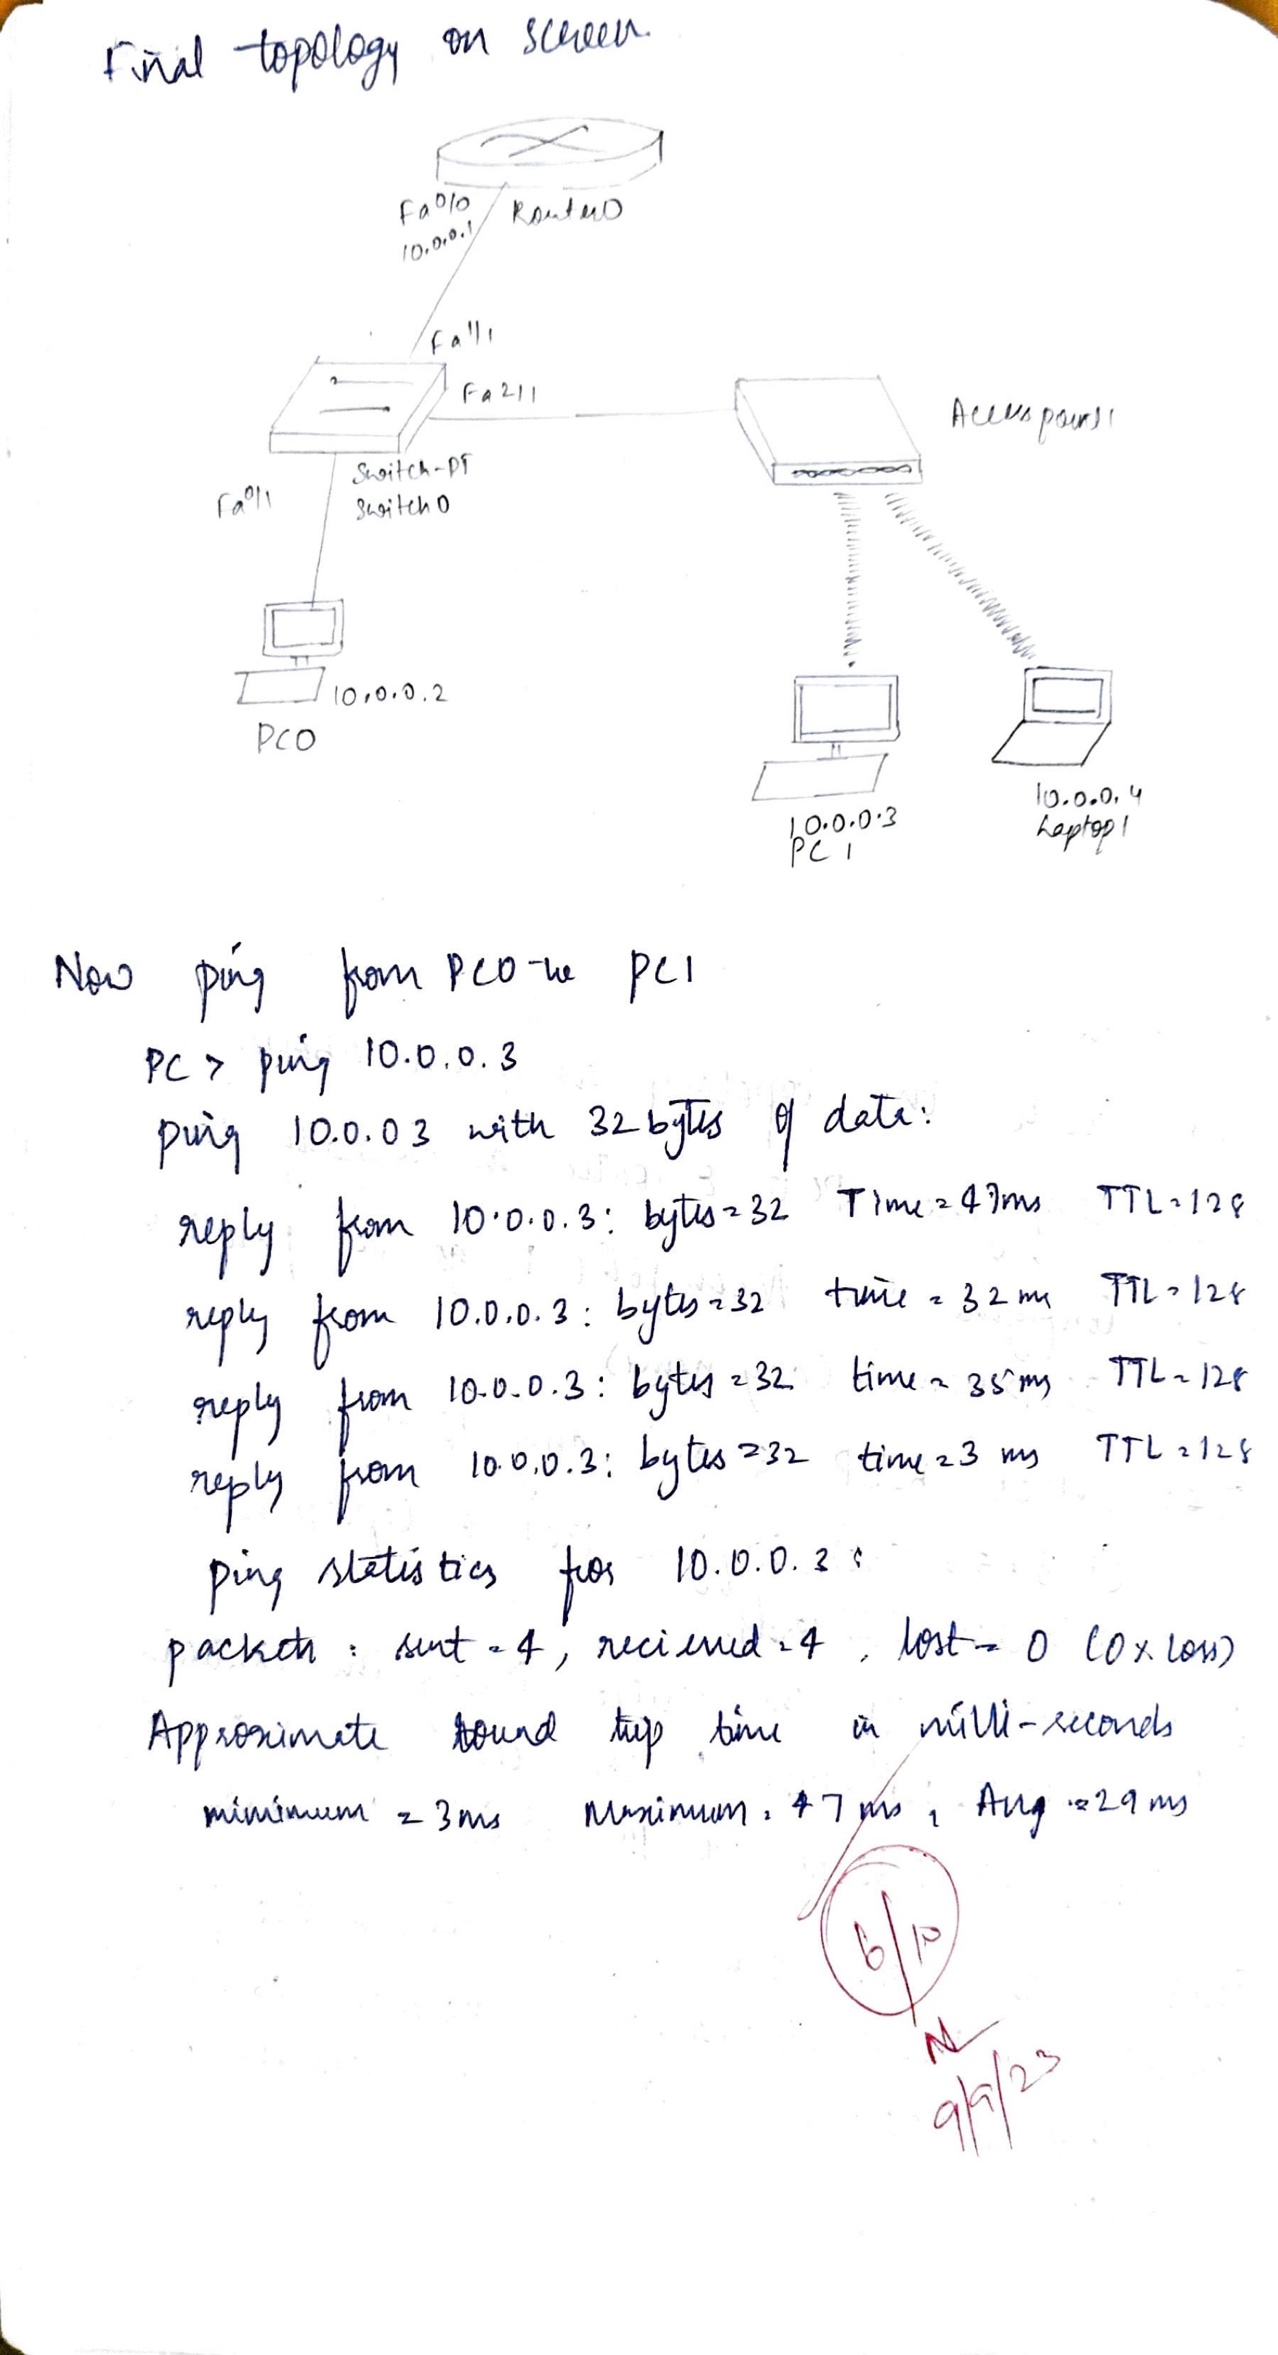 Final topology on screen.
Fa0/0
Router0
10.0.0.1
Fa1/1
Fa2/1
Switch-PT
Switch0
Fa0/1
10.0.0.2
PC0
10.0.0.3
PC1
10.0.0.4
Laptop1
Now ping from PC0 PC1
PC > ping 10.0.0.3
Ping 10.0.03 with 32 bytes of data:
reply from 10.0.0.3: bytes=32 Time=47ms TTL=128
reply from 10.0.0.3: bytes=32 time=32 ms TTL=128
reply from 10.0.0.3: bytes=32 time=35ms TTL=128
reply from 10.0.0.3: bytes=32 time=3 ms TTL=128
Ping statistics for 10.0.0.3:
sent=4, lost=0 (0% loss)
Approximate round trip time in milli-seconds
minimum = 3ms Maximum = 47 ms, Avg = 29 ms
6/10
9/9/23